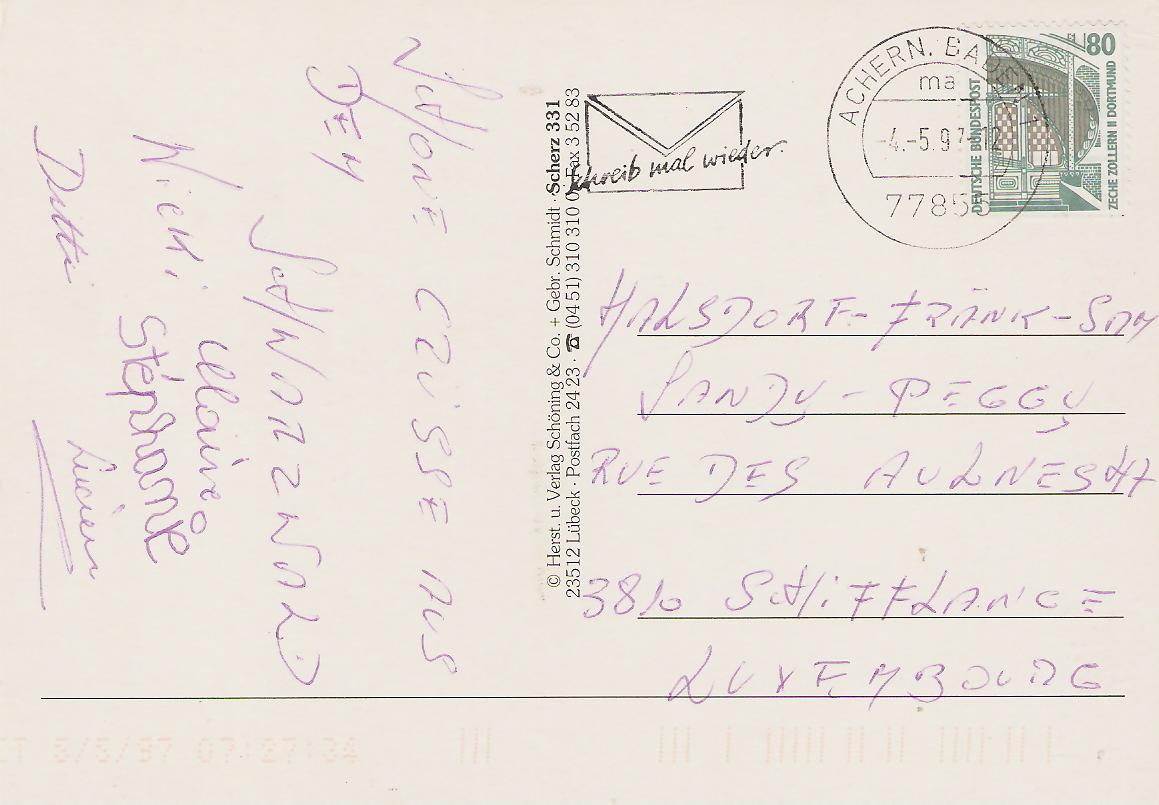 SCHÖNE GRÜSSE AUS
DEM
SCHWARZWALD
Claire
Nicki Stéphanie
Lucien
© Herst. u. Verlag Schöning & Co. + Gebr. Schmidt · Scherz 331
23512 Lübeck · Postfach 24 23 · ☎ (04 51) 310 310 0 Fax 3 52 83
schreib mal wieder.
ACHERN, BADEN 1
ma
-4.-5.97-12
77855
80
DEUTSCHE BUNDESPOST
ZECHE ZOLLERN II DORTMUND
HALSDORF-FRÄNK-SAM
SANDY-PEGGY
RUE DES AULNES 47
3810 SCHIFFLANGE
LUXEMBOURG
CT 5/5/97 07:27:34